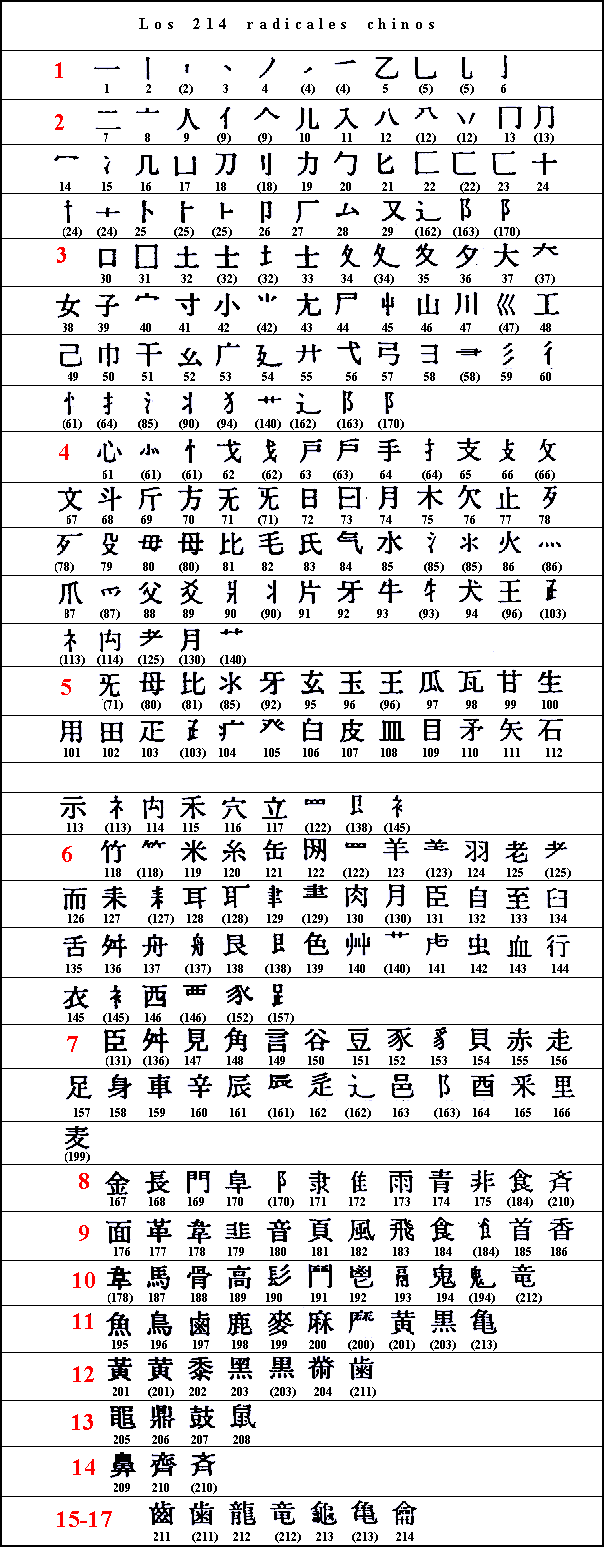 Los 214 radicales chinos
1 一 丨 丶 丿 乙 乚 亅
1 2 (2) 3 4 (4) (4) 5 (5) (5) 6
2 二 亠 人 亻 𠆢 儿 入 八 丷 冂
7 8 9 (9) (9) 10 11 12 (12) (12) 13 (13)
冖 冫 几 凵 刀 刂 力 勹 匕 匚 匚 匸 十
14 15 16 17 18 (18) 19 20 21 22 (22) 23 24
卜 卩 厂 厶 又 辶 阝 阝
(24) (24) 25 (25) (25) 26 27 28 29 (162) (163) (170)
3 口 囗 土 士 士 夂 夊 夕 大
30 31 32 (32) (32) 33 34 (34) 35 36 37 (37)
女 子 宀 寸 小 ⺌ 尢 尸 屮 山 川 巛 工
38 39 40 41 42 (42) 43 44 45 46 47 (47) 48
己 巾 干 幺 广 廴 廾 弋 弓 彐 彡 彳
49 50 51 52 53 54 55 56 57 58 (58) 59 60
忄 扌 氵 丬 犭 艹 辶 阝 阝
(61) (64) (85) (90) (94) (140) (162) (163) (170)
4 心 忄 戈 戶 戶 手 扌 支 攴 攵
61 (61) (61) 62 (62) 63 (63) 64 (64) 65 66 (66)
文 斗 斤 方 无 旡 日 曰 月 木 欠 止 歹
67 68 69 70 71 (71) 72 73 74 75 76 77 78
歹 殳 毋 母 比 毛 氏 气 水 氵 氺 火 灬
(78) 79 80 (80) 81 82 83 84 85 (85) (85) 86 (86)
爪 爫 父 爻 爿 丬 片 牙 牛 牜 犬 王
87 (87) 88 89 90 (90) 91 92 93 (93) 94 (96) (103)
礻 禸 耂 月 艹
(113) (114) (125) (130) (140)
5 旡 母 比 氺 牙 玄 玉 王 瓜 瓦 甘 生
(71) (80) (81) (85) (92) 95 96 (96) 97 98 99 100
用 田 疋 疒 癶 白 皮 皿 目 矛 矢 石
101 102 103 (103) 104 105 106 107 108 109 110 111 112
示 礻 禸 禾 穴 立 罒 衤
113 (113) 114 115 116 117 (122) (138) (145)
6 竹 ⺮ 米 糸 缶 网 罒 羊 羽 老 耂
118 (118) 119 120 121 122 (122) 123 (123) 124 125 (125)
而 耒 耒 耳 耳 聿 肉 月 臣 自 至 臼
126 127 (127) 128 (128) 129 (129) 130 (130) 131 132 133 134
舌 舛 舟 舟 艮 色 艸 艹 虍 虫 血 行
135 136 137 (137) 138 (138) 139 140 (140) 141 142 143 144
衣 衤 西 覀 豕
145 (145) 146 (146) (152) (157)
7 臣 舛 見 角 言 谷 豆 豕 豸 貝 赤 走
(131) (136) 147 148 149 150 151 152 153 154 155 156
足 身 車 辛 辰 辰 辵 辶 邑 阝 酉 釆 里
157 158 159 160 161 (161) 162 (162) 163 (163) 164 165 166
麦
(199)
8 金 長 門 阜 阝 隶 隹 雨 青 非 食 斉
167 168 169 170 (170) 171 172 173 174 175 (184) (210)
9 面 革 韋 韭 音 頁 風 飛 食 飠 首 香
176 177 178 179 180 181 182 183 184 (184) 185 186
10 韋 馬 骨 高 髟 鬥 鬯 鬲 鬼 鬼 竜
(178) 187 188 189 190 191 192 193 194 (194) (212)
11 魚 鳥 鹵 鹿 麥 麻 麻 黄 黒 亀
195 196 197 198 199 200 (200) (201) (203) (213)
12 黃 黄 黍 黑 黒 黹 歯
201 (201) 202 203 (203) 204 (211)
13 黽 鼎 鼓 鼠
205 206 207 208
14 鼻 齊 斉
209 210 (210)
15-17 齒 歯 龍 竜 龜 亀 龠
211 (211) 212 (212) 213 (213) 214